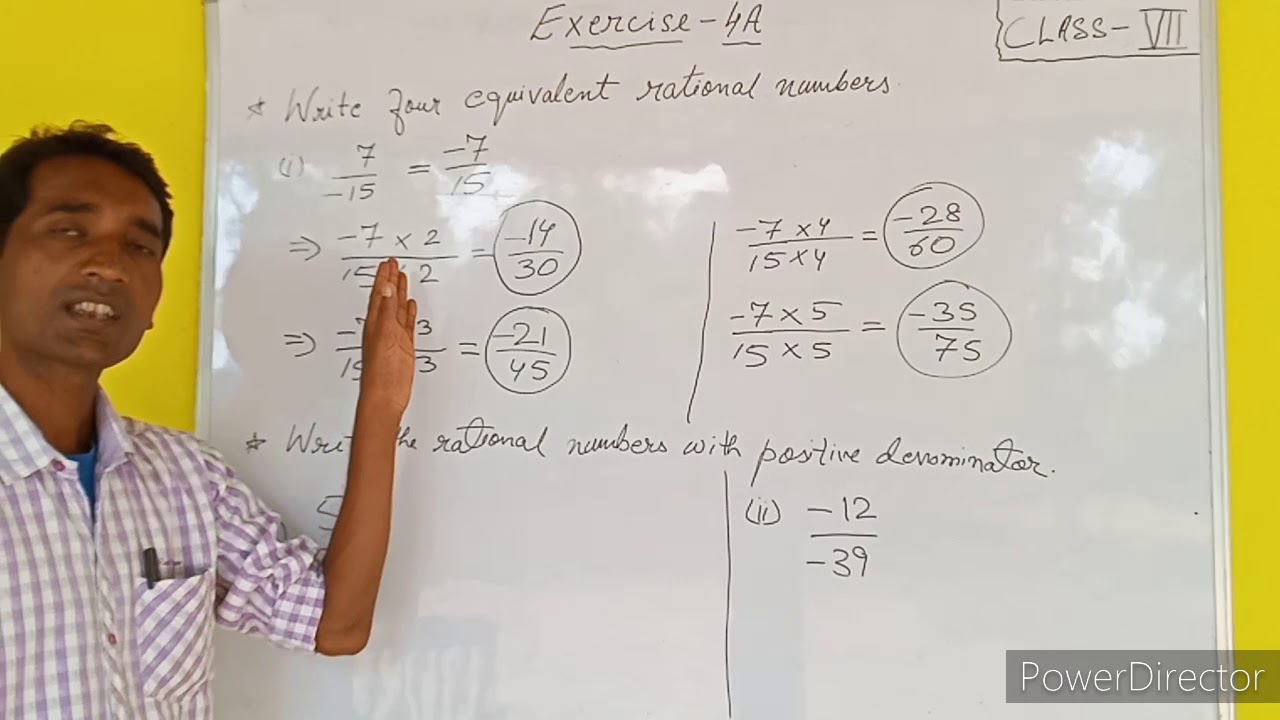 Exercise - 4A
CLASS - VII
* Write four equivalent rational numbers.
(i) 7/-15 = -7/15
⇒ -7 × 2 / 15 × 2 = -14/30
⇒ -7 3 / 15 3 = -21/45
-7 × 4 / 15 × 4 = -28/60
-7 × 5 / 15 × 5 = -35/75
* Write the rational numbers with positive denominator.
5
(ii) -12/-39
PowerDirector